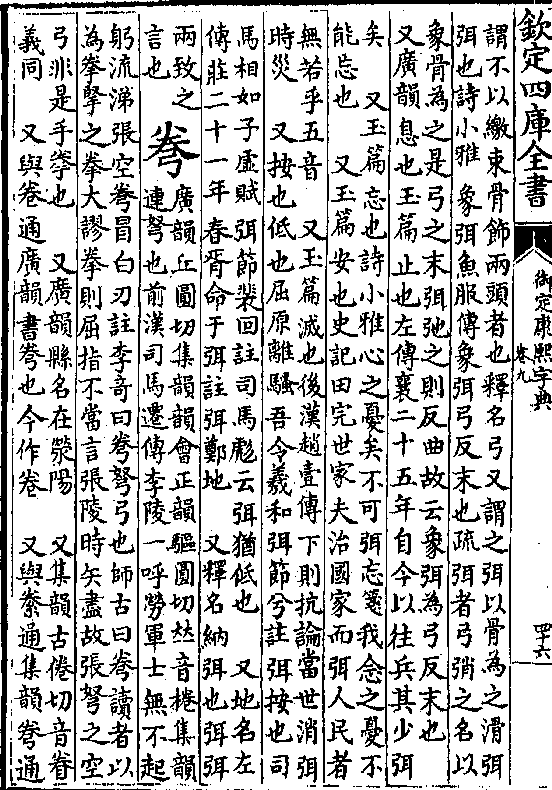 欽定四庫全書
御定康熙字典
卷九
四十六
謂不以繳束骨飾兩頭者也釋名弓又謂之弭以骨為之滑弭
弭也詩小雅 象弭魚服傳象弭弓反末也疏弭者弓弰之名以
象骨為之是弓之末弭弛之則反曲故云象弭為弓反末也
又廣韻息也玉篇止也左傳襄二十五年自今以往兵其少弭
矣 又玉篇忘也詩小雅心之憂矣不可弭忘箋我念之憂不
能忘也 又玉篇安也史記田完世家夫治國家而弭人民者
無若乎五音 又玉篇滅也後漢趙壹傳下則抗論當世消弭
時災 又按也低也屈原離騷吾令羲和弭節兮註弭按也司
馬相如子虛賦弭節裴回註司馬彪云弭猶低也 又地名左
傳莊二十一年春胥命于弭註弭鄭地 又釋名納弭也弭弭
兩致之
言也
弮
廣韻丘圓切集韻韻會正韻驅圓切𠀤音棬集韻
連弩也前漢司馬遷傳李陵一呼勞軍士無不起
躬流涕張空弮冒白刃註李竒曰弮弩弓也師古曰弮讀者以
為拳擊之拳大謬拳則屈指不當言張陵時矢盡故張弩之空
弓非是手拳也 又廣韻縣名在滎陽 又集韻古倦切音眷
義同 又與卷通廣韻書弮也今作卷 又與絭通集韻弮通